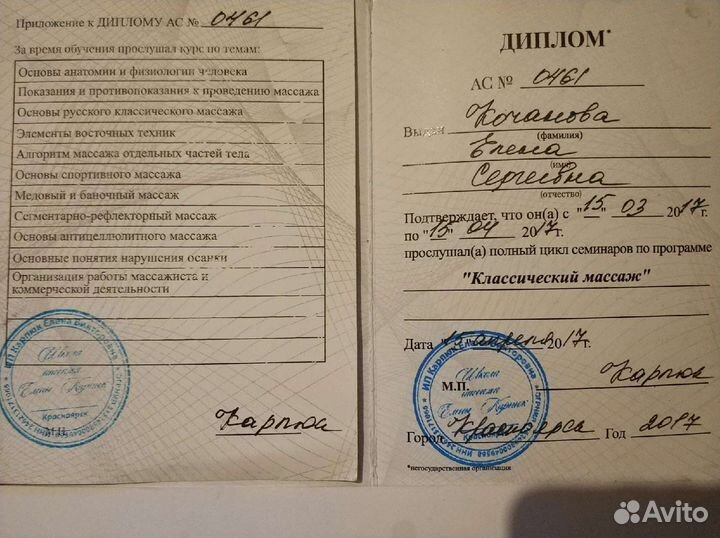 Приложение к ДИПЛОМУ АС № 0461
За время обучения прослушал курс по темам:
Основы анатомии и физиологии человека
Показания и противопоказания к проведению массажа
Основы русского классического массажа
Элементы восточных техник
Алгоритм массажа отдельных частей тела
Основы спортивного массажа
Медовый и баночный массаж
Сегментарно-рефлекторный массаж
Основы антицеллюлитного массажа
Основные понятия нарушения осанки
Организация работы массажиста и
коммерческой деятельности
ИП Карпюк Елена Викторовна
Школа
массажа
Елены Карпюк
Красноярск
М.П.
Карпюк
ДИПЛОМ*
АС № 0461
Выдан Кочанова
(фамилия)
Елена
(имя)
Сергеевна
(отчество)
Подтверждает, что он(а) с "15" 03 2017г.
по "15" 04 2017г.
прослушал(а) полный цикл семинаров по программе
"Классический массаж"
Дата "15 апреля 2017г.
М.П.
Карпюк
ИП Карпюк Елена Викторовна
Школа
массажа
Елены Карпюк
Красноярск
Город Красноярск Год 2017
*негосударственная организация
Avito